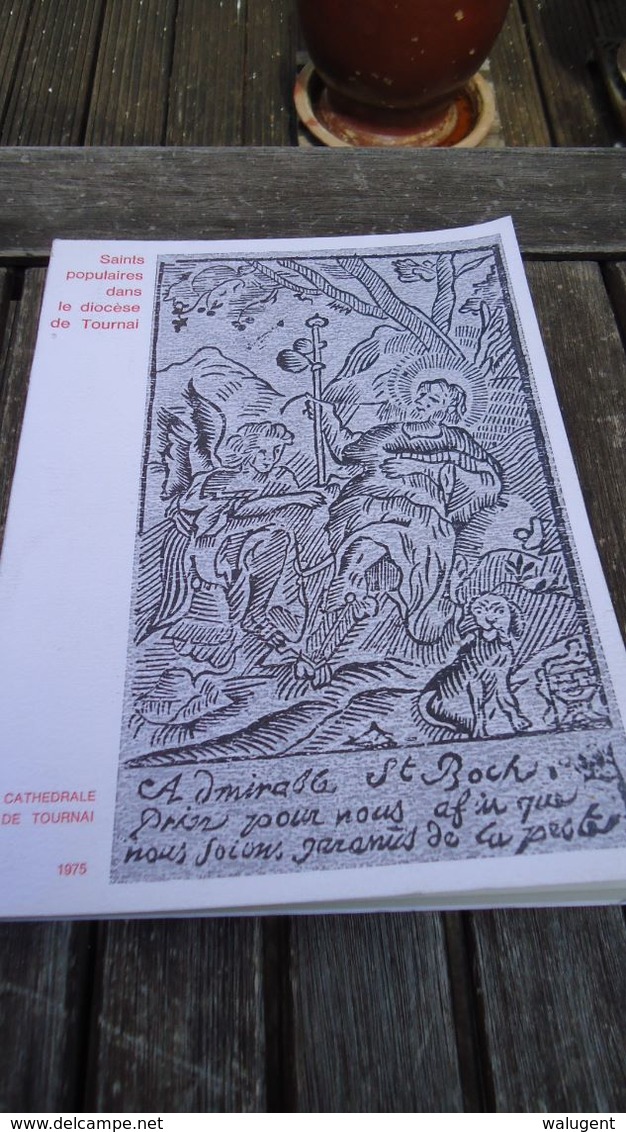 Saints
populaires
dans
le diocèse
de Tournai
Admirable St Roch.
Priez pour nous afin que
nous soions garantis de la peste
CATHEDRALE
DE TOURNAI
1975
delcampe.net
walugent